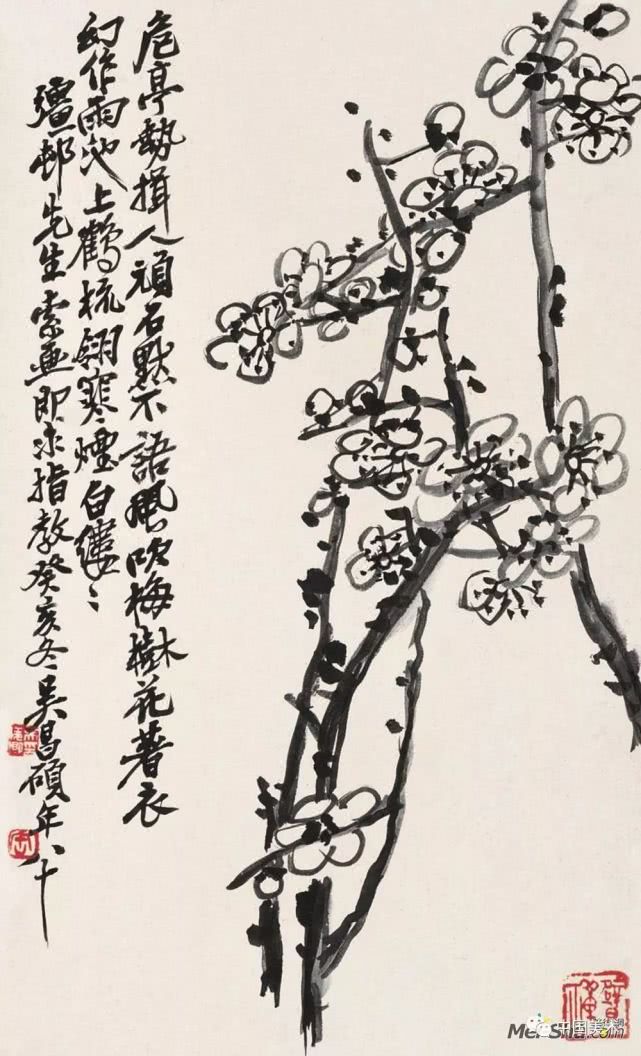 危亭勢揖人頑石默不語風吹梅樹花著衣
幻作雨池上鶴梳翎寒煙白縷〻
彊邨先生索畫即求指教癸亥冬吳昌碩年八十
中国美术